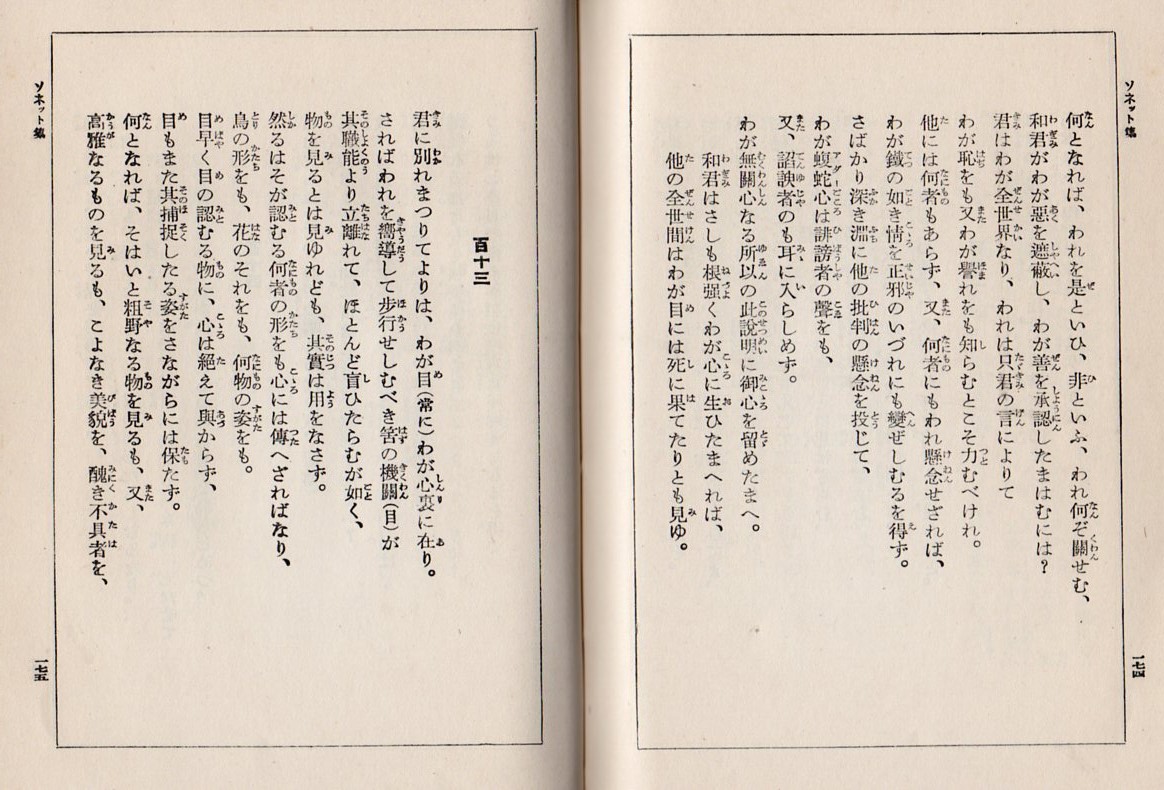 ソネット集
何となれば、われを是といひ、非といふ、われ何ぞ關せむ、
和君がわが惡を遮蔽し、わが善を承認したまはむには?
君はわが全世界なり、われは只君の言によりて
わが恥をも又わが譽れをも知らむとこそ力むべけれ。
他には何者もあらず、又、何者にもわれ懸念せざれば、
わが鐵の如き情を正邪のいづれにも變ぜしむるを得ず。
さばかり深き淵に他の批判の懸念を投じて、
わが蝮蛇心は誹謗者の聲をも、
又、諂諛者のも耳に入らしめず。
わが無關心なる所以の此說明に御心を留めたまへ。
和君はさしも根强くわが心に生ひたまへれば、
他の全世間はわが目には死に果てたりとも見ゆ。
一七四
ソネット集
百十三
君に別れまつりてよりは、わが目(常に)わが心裏に在り。
さればわれを嚮導して步行せしむべき筈の機關(目)が
其職能より立離れて、ほとんど盲ひたらむが如く、
物を見るとは見ゆれども、其實は用をなさず。
然るはそが認むる何者の形をも心には傳へざればなり、
鳥の形をも、花のそれをも、何物の姿をも。
目早く目の認むる物に、心は絕えて與からず、
目もまた其捕捉したる姿をさながらには保たず。
何となれば、そはいと粗野なる物を見るも、又、
高雅なるものを見るも、こよなき美貌を、醜き不具者を、
一七五